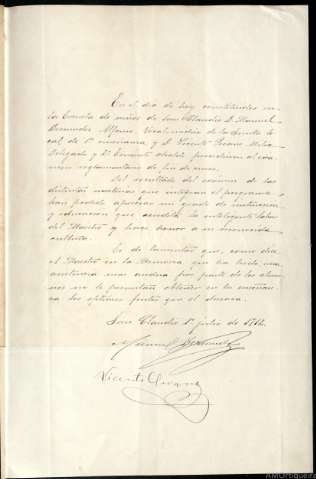 En el día de hoy constituidos en
la Escuela de niños de San Claudio D. Manuel
Vocal médico de la Junta lo
cal de 1ª enseñanza y D. Vicente
Delegado y 2º Teniente alcalde procedieron al exa
men reglamentario de fin de curso.
Del resultado del examen de las
distintas materias que integran el programa
han podido apreciar un grado de instrucción
y educación que acredita la inteligente labor
del Maestro y hace honor a su reconocida
cultura.
Es de lamentar que, como dice
el Maestro en la Memoria que ha leído, una
asistencia mas asidua por parte de los alum
nos no le permitan obtener en la enseñan
za los óptimos frutos que el desea.
San Claudio 1º julio de 1912.
Manuel
Vicente
AMOrtigueira